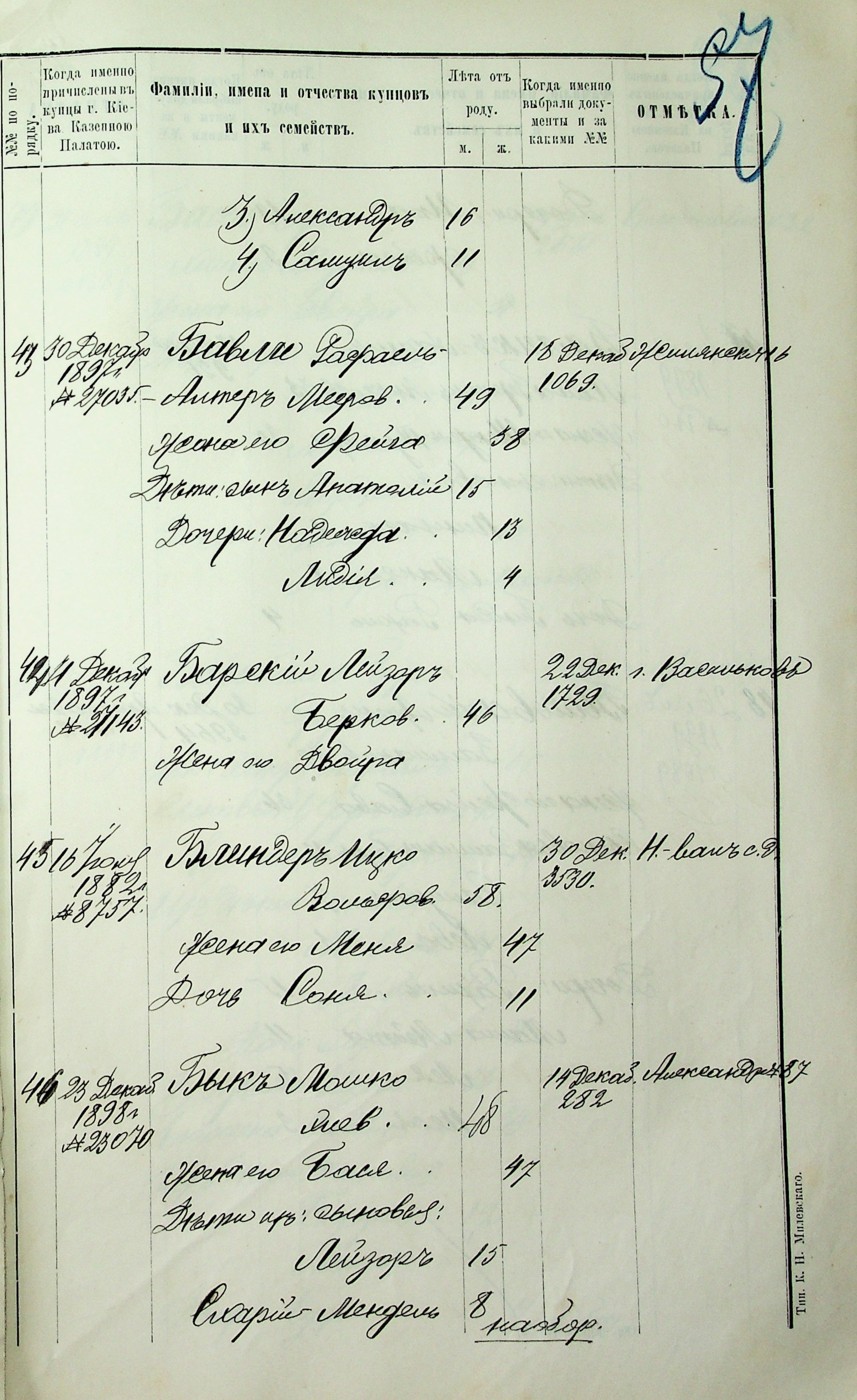 54
№№ по порядку.
Когда именно причислены въ купцы г. Кіева Казенною Палатою.
Фамиліи, имена и отчества купцовъ и ихъ семействъ.
Лѣта отъ роду.
м. ж.
Когда именно выбрали документы и за какими №№
ОТМѢТКА.
3) Александръ 16
4) Самуилъ 11
43 30 Декабр Бавли Рафаель- 18 Декаб Жилянская 16
1897 г. 1069.
№ 27035. Алтеръ Мееров. 49
Жена его Фейга 38
Дѣти: сынъ Анатолій 15
Дочери: Надежда. 13
Лидія. 4
44 31 Декабр Барскій Лейзоръ 22 Дек. г. Васильковъ
1897 г. 1729.
№ 27143. Берков. 46
Жена его Двойра
45 16 Іюня Блиндеръ Ицко 30 Дек. Н.-
1882 г. 3530.
№ 8757. 58.
Жена его Меня 47
Дочь Соня. 11
46 23 Декаб Быкъ Мошко 14 Декаб. Александр 87
1898 г. 282
№ 23070 48
Жена его Бася. 47
Дѣти ихъ: сыновья:
Лейзоръ 15
Мендель 8
Тип. К. Н. Милевскаго.